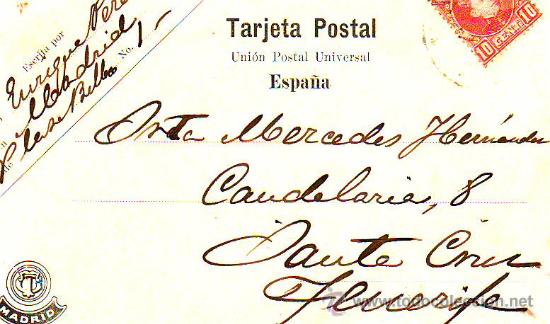 Tarjeta Postal
Unión Postal Universal
España
10 10
Escrija por
Enrique Pere
Madrid
No. 1
Srta Mercedes Hernández
Candelaria, 8
Santa Cruz
Tenerife
MADRID
www.todocoleccion.net